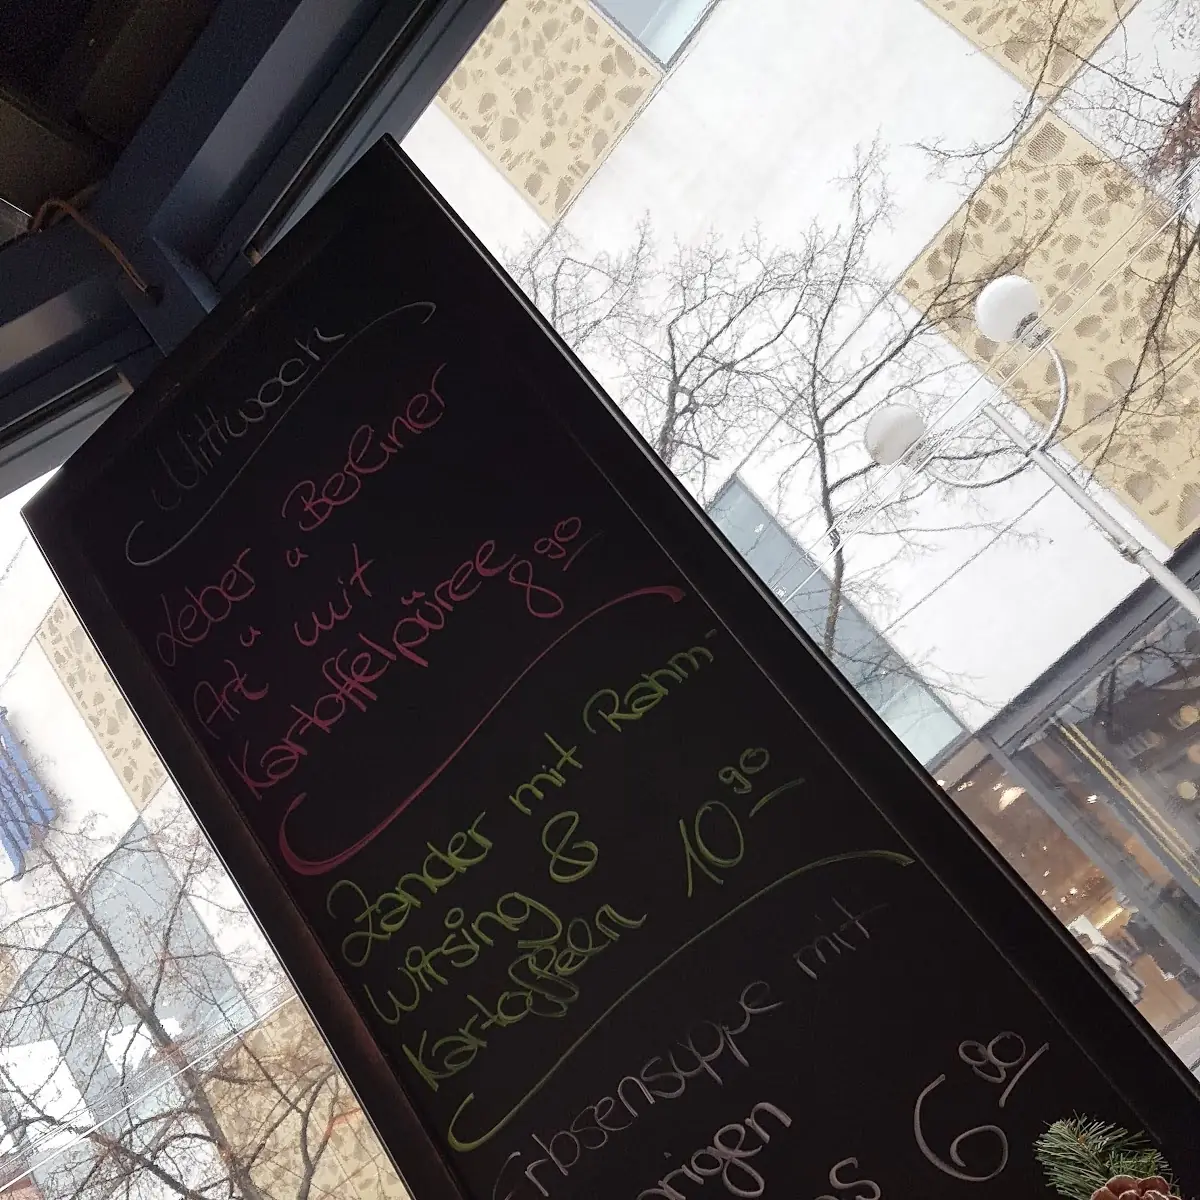 Mittwoch
Leber " Berliner
Art " mit
Kartoffelpüree 8,90
Zander mit Rahm-
wirsing &
Kartoffeln 10,90
Erbsensuppe mit
6,90